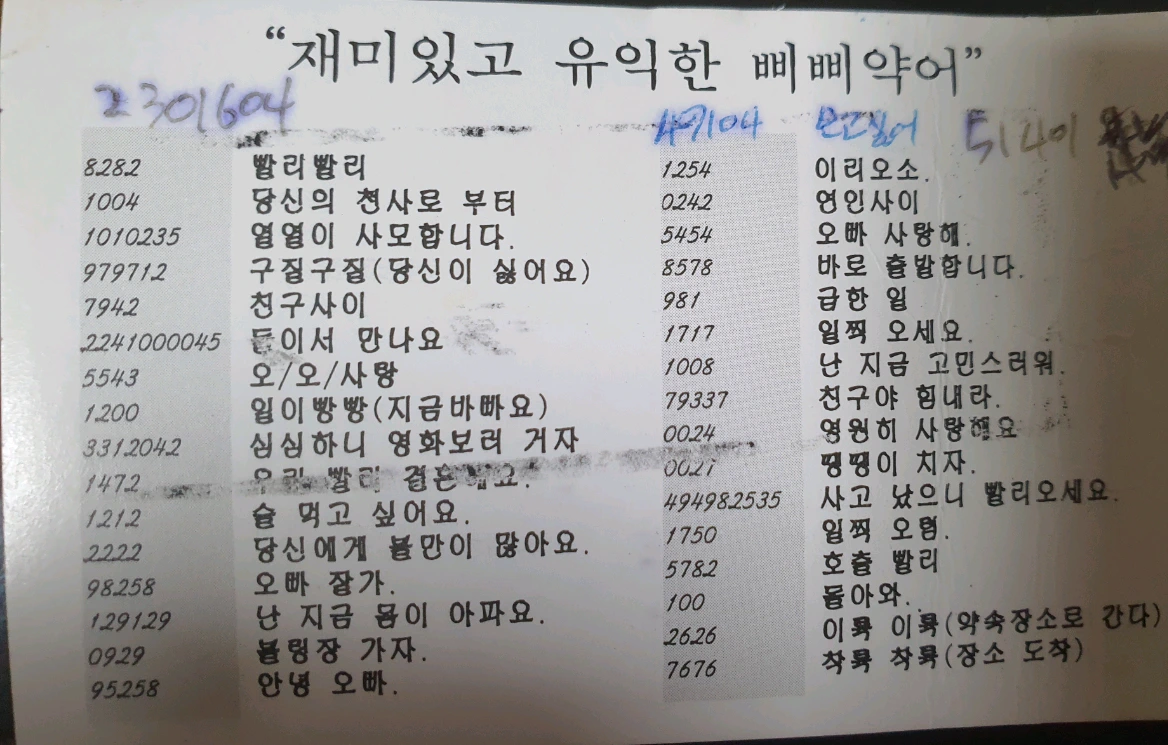 “재미있고 유익한 삐삐약어”
2301604
8282 빨리빨리
1004 당신의 천사로 부터
1010235 열열이 사모합니다.
979712 구질구질(당신이 싫어요)
7942 친구사이
2241000045 둘이서 만나요
5543 오/오/사랑
1200 일이빵빵(지금바빠요)
3312042 심심하니 영화보러 거자
1472 우리 빨리 결혼해요.
1212 술 먹고 싶어요.
2222 당신에게 불만이 많아요.
98258 오빠 잘가.
129129 난 지금 몸이 아파요.
0929 볼링장 가자.
95258 안녕 오빠.
보고싶어
1254 이리오소.
0242 연인사이
5454 오빠 사랑해.
8578 바로 출발합니다.
981 급한 일
1717 일찍 오세요.
1008 난 지금 고민스러워.
79337 친구야 힘내라.
0024 영원히 사랑해요
0027 땡땡이 치자.
494982535 사고 났으니 빨리오세요.
1750 일찍 오렴.
5782 호출 빨리
100 돌아와.
2626 이륙 이륙(약속장소로 간다)
7676 착륙 착륙(장소 도착)